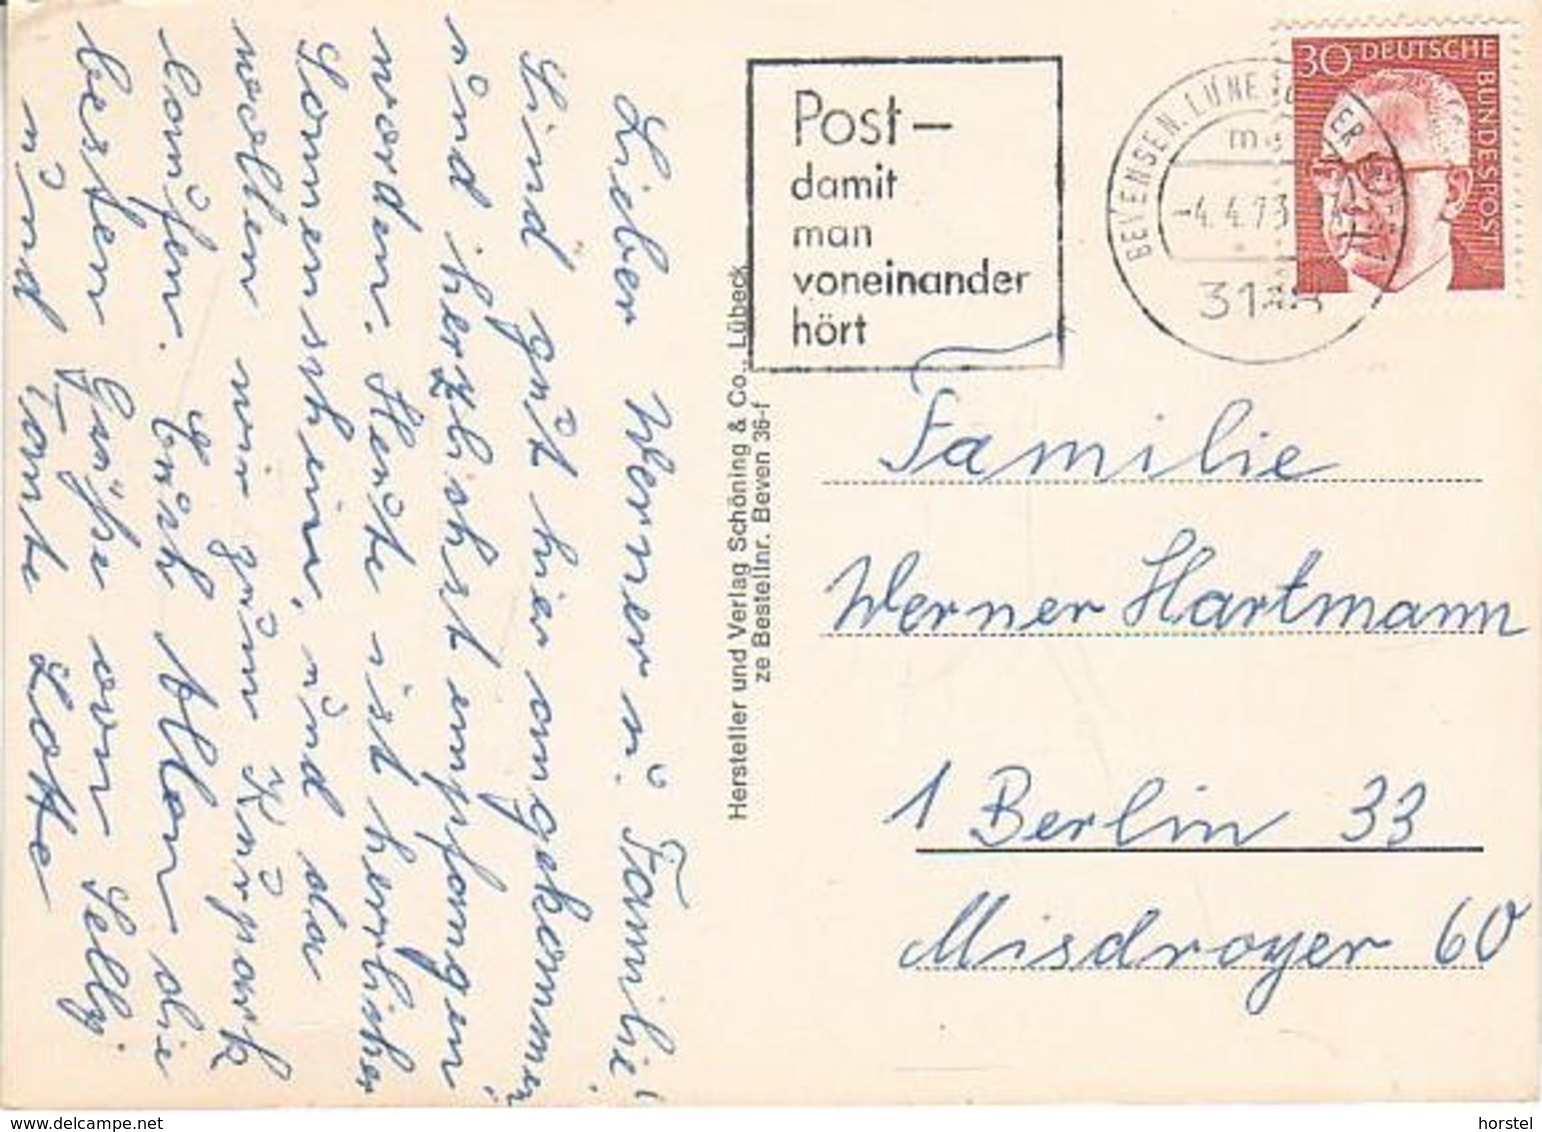 Lieber Werner u. Familie!
Sind gut hier angekommen,
und herzlichst empfangen
worden. Heute ist herrlicher
Sonnenschein, und da
wollen wir zum Kurpark
laufen. Euch Allen die
besten Grüße von Selly.
und Tante Lotte
Hersteller und Verlag Schöning & Co., Lübeck
ze Bestellnr. Beven 36-f
Post –
damit
man
voneinander
hört
BEVENSEN, LÜNEBURGER
-4.4.73
30 DEUTSCHE BUNDESPOST
Familie
Werner Hartmann
1 Berlin 33
Misdroyer 60
delcampe.net
horstel